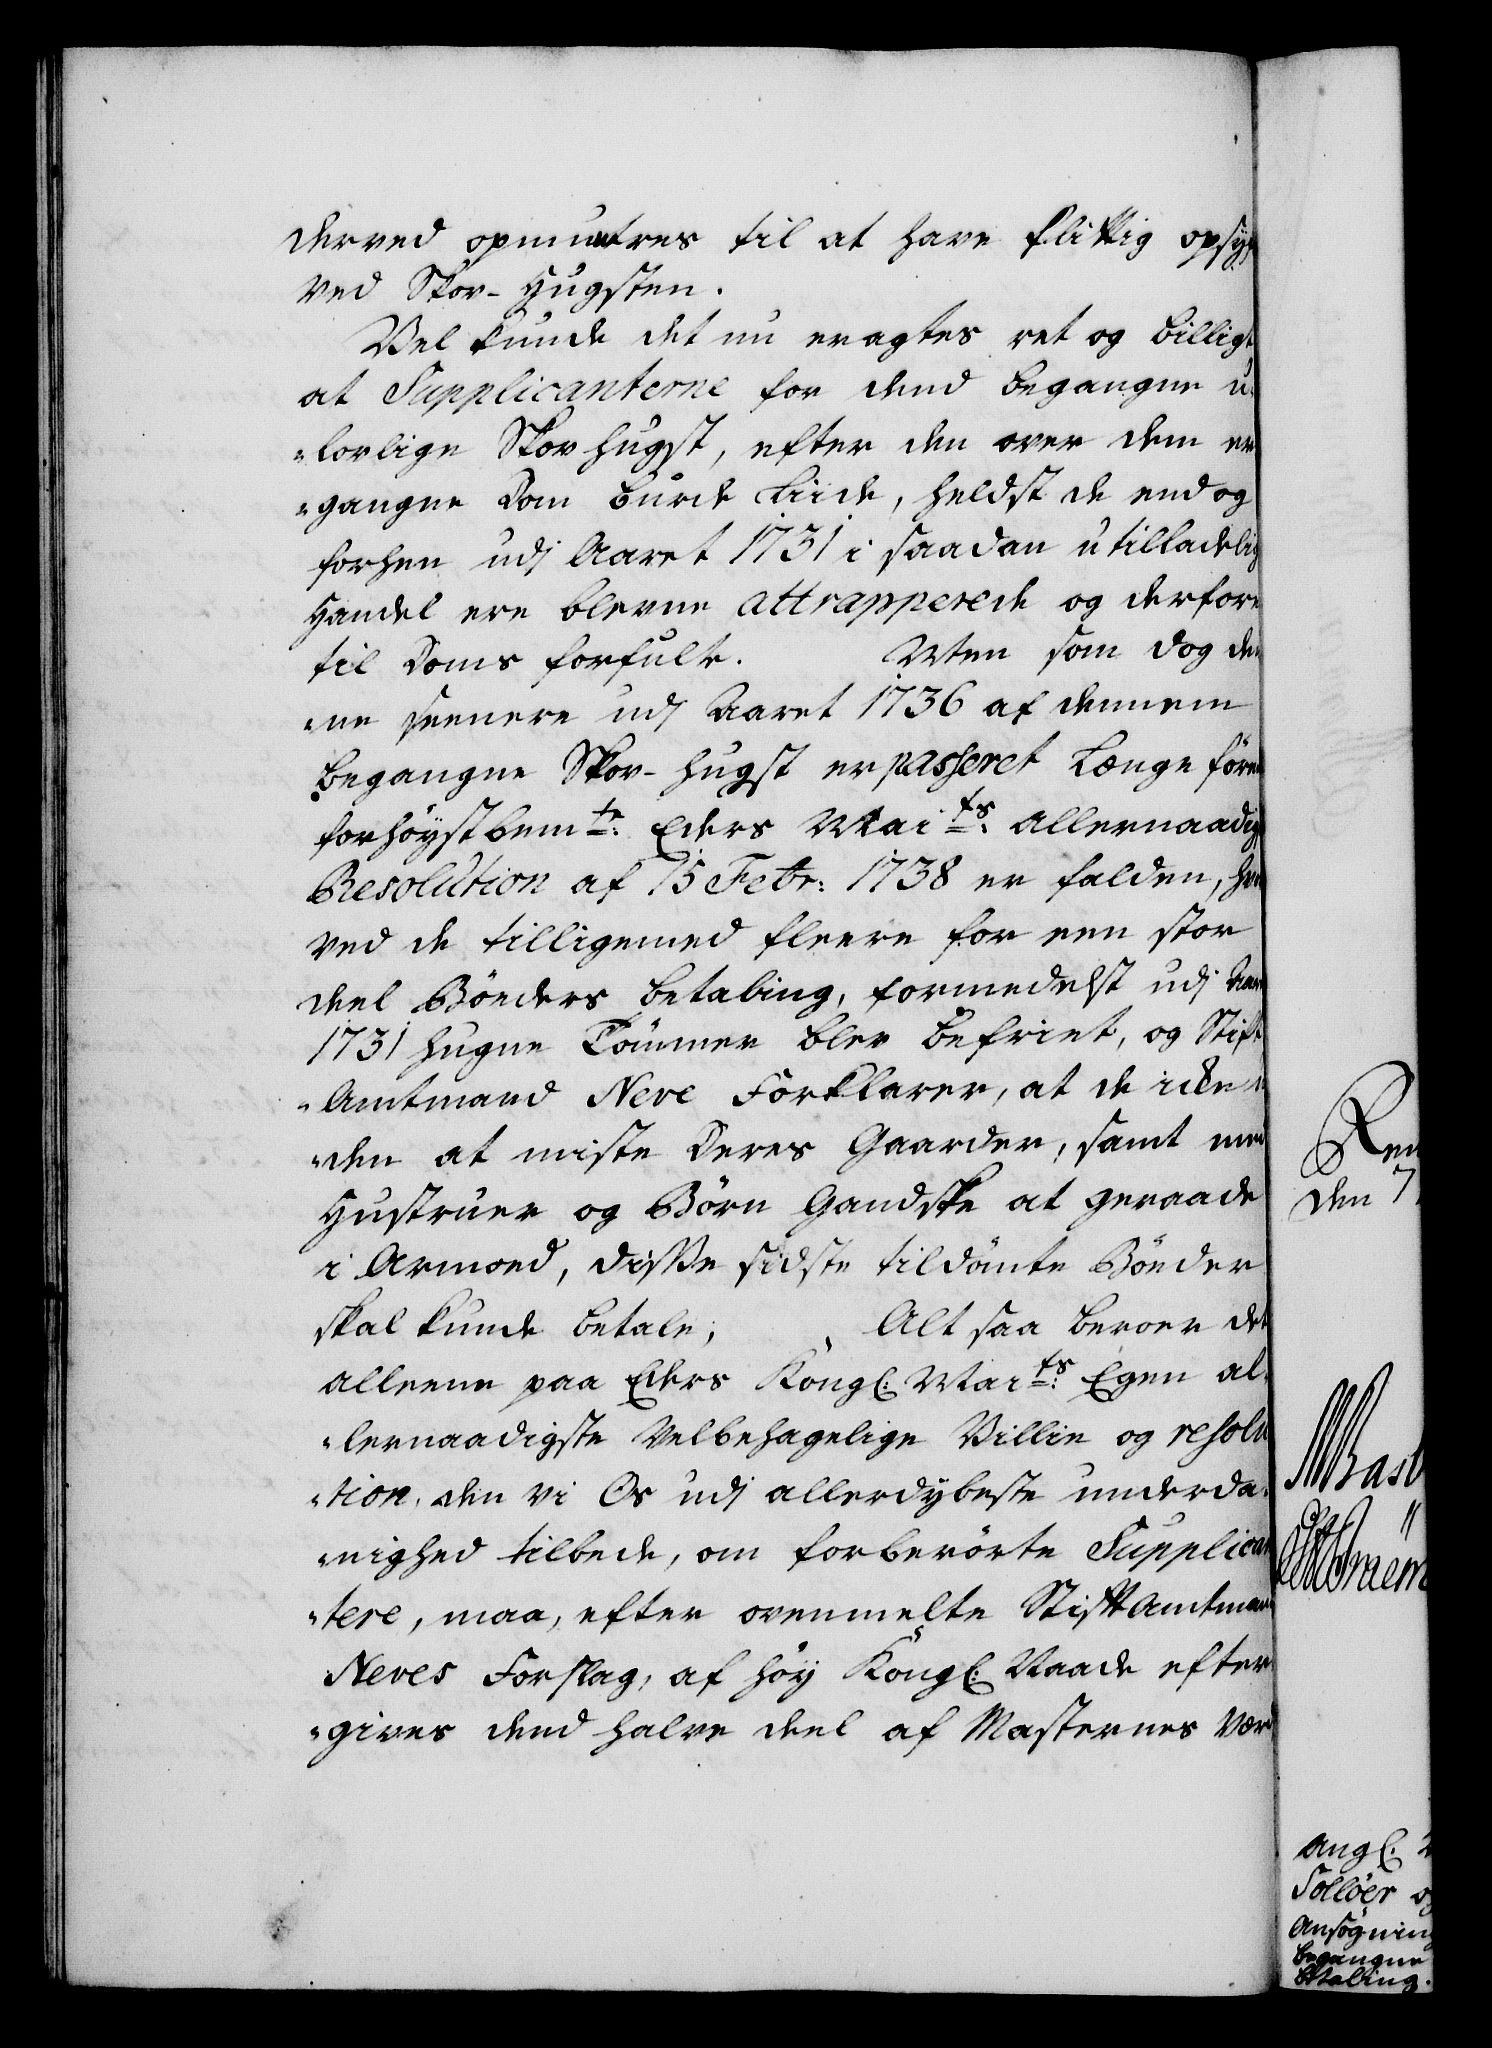 derved opmuntres til at have flittig opsyn
ved Skov-Hugsten.
Vel kunde det nu eragtes ret og billigt
at Supplicanterne for dend begangne u-
„lovlige Skovhugst, efter den over dem er
„gangne Dom burde liide, heldst de end og
forhen udj Aaret 1731 i saadan utilladelig
Handel ere blevne attrapperede og derfore
til Doms forfult. Men som dog den
„ne seenere udj Aaret 1736 af dennem
begangne Skov-hugst er passeret længe förend
forhöystbemte: Eders Maits: allernaadigste
Resolution af 15 Febr: 1738 er falden, hvor
ved de tilligemed fleere for een stor
deel Böeders betaling, formedelst udj Aaret
1731 hugne Tömmer blev befriet, og Stift
„Amtmand Neve Forklarer, at de icke u
„den at miste Deres Gaarder, samt med
Hustruer og Börn Gandske at geraade
i Armoed, disse sidste tildömte Böeder
skal kunde betale; Alt saa beroer det
alleene paa Eders Kongl: Maits: Egen al-
„lernaadigste Velbehagelige Villie og resolu
„tion, den vi Os udj allerdybeste underda-
„nighed tilbede, om forberörte Supplican
„tere, maa, efter ovenmelte StiftAmtmand
Neves Forslag, af höy Kongl: Naade efter
„gives dend halve deel af Masternes Værd
Ren
den 7
Angl:
Solloer og
Ansögning
begangne
betaling.